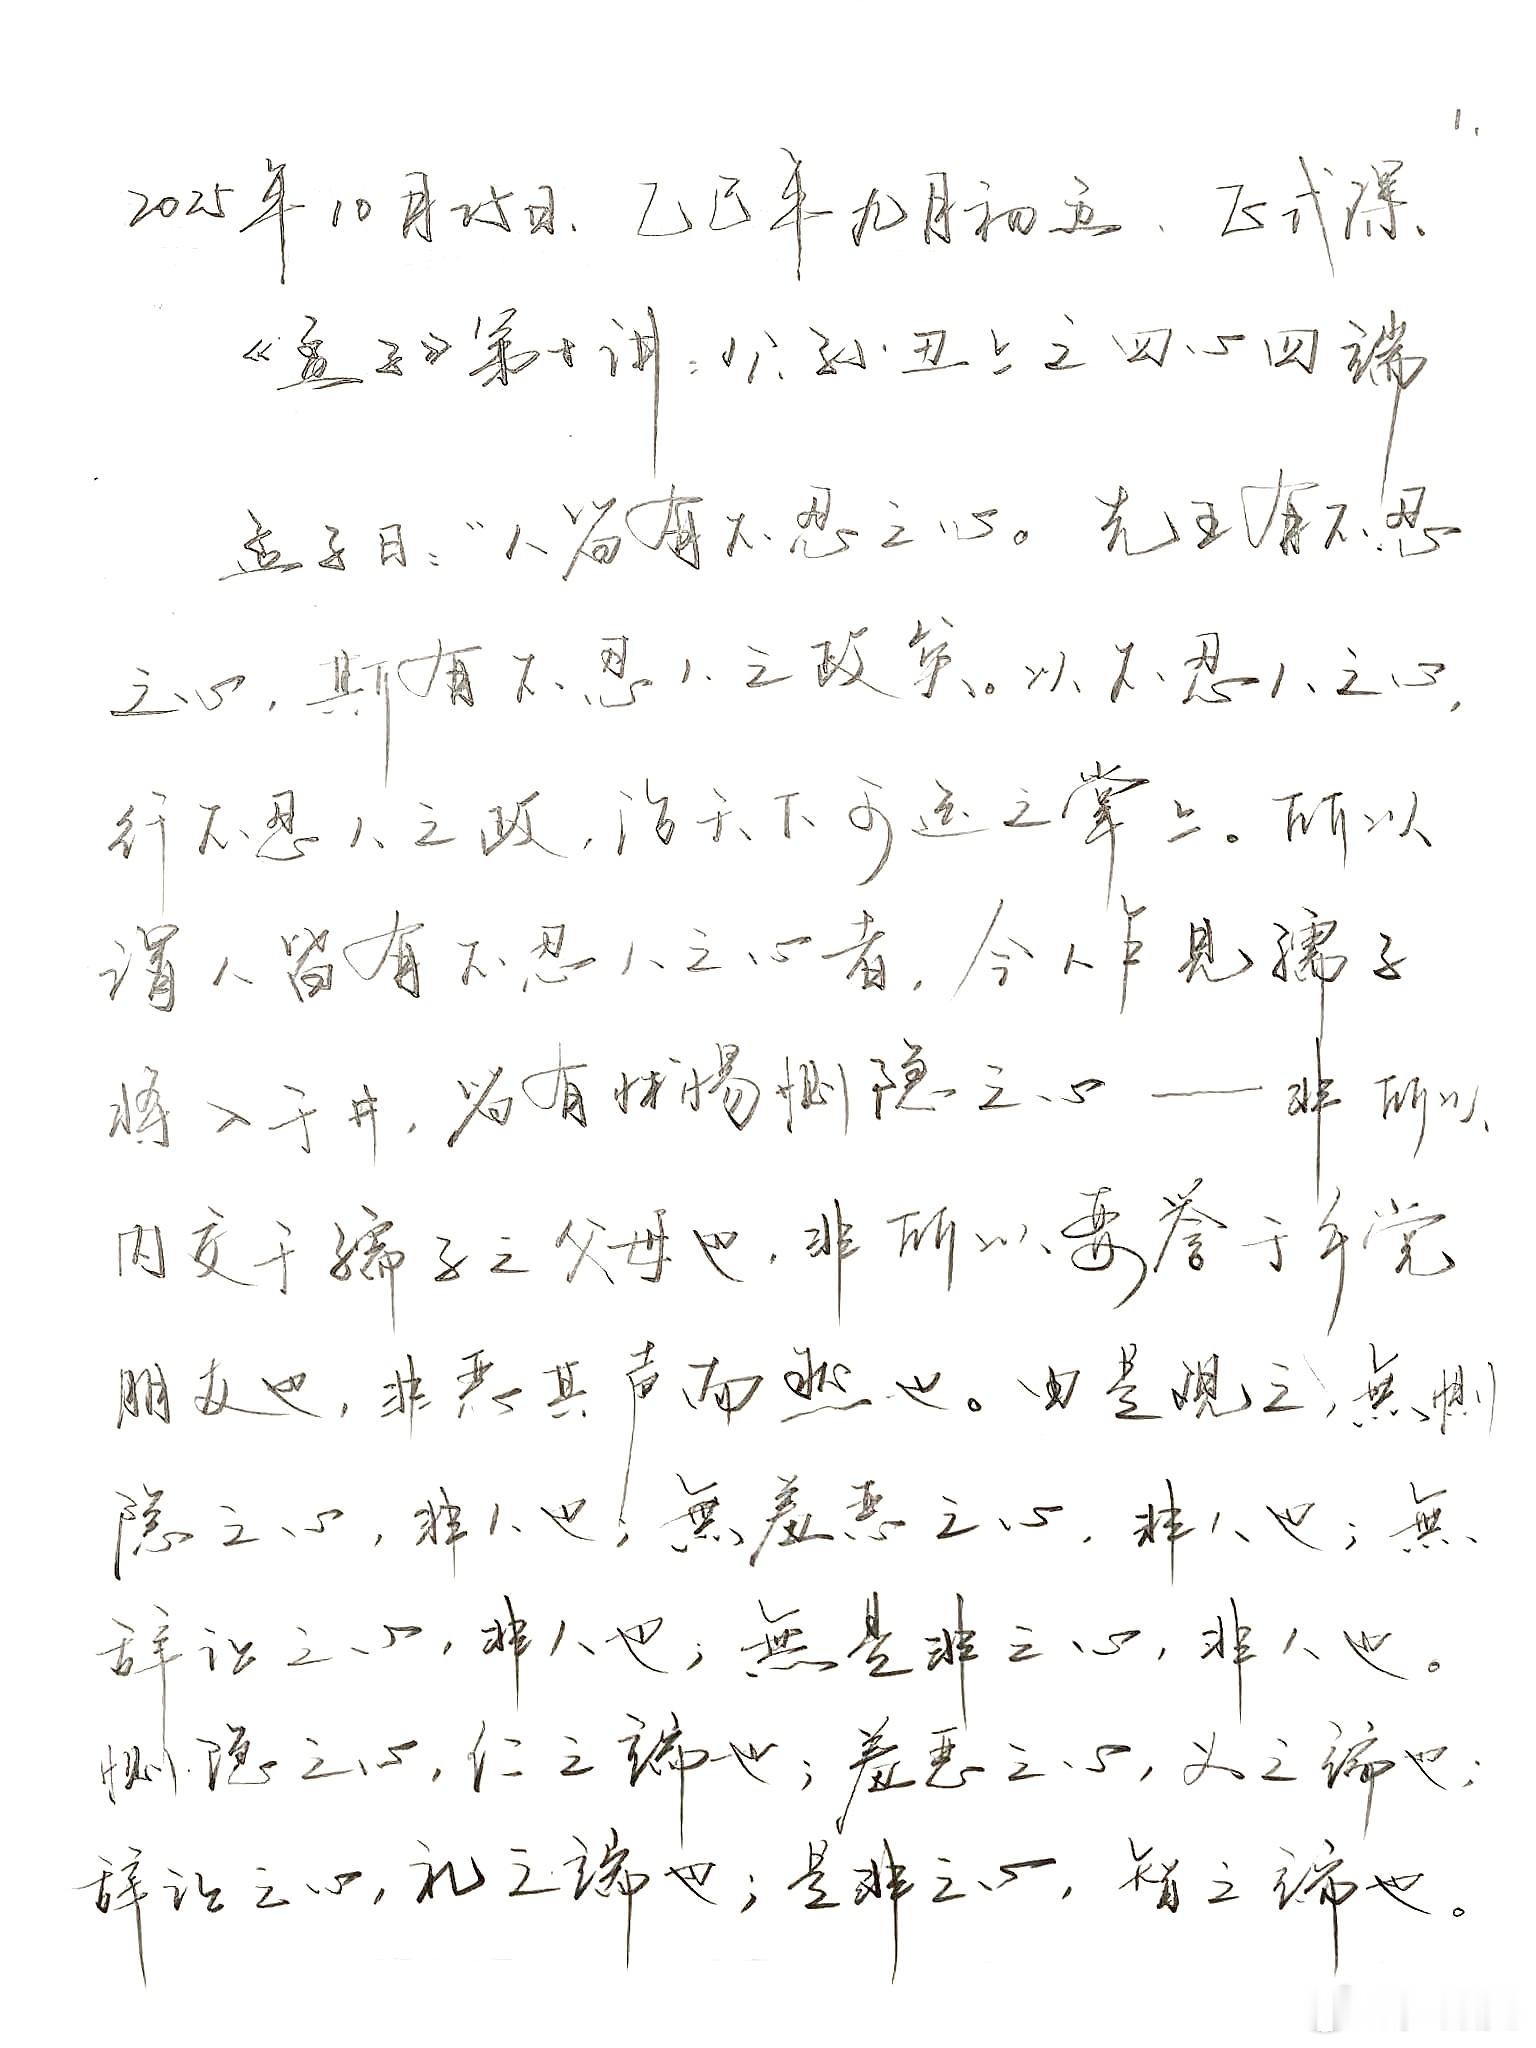 1.
2025年10月25日、乙巳年九月初五、正式课、
《孟子》第十讲：公孙丑上之四心四端
孟子曰：“人皆有不忍之心。先王有不忍
之心，斯有不忍人之政矣。以不忍人之心，
行不忍人之政，治天下可运之掌上。所以
谓人皆有不忍人之心者，今人乍见孺子
将入于井，皆有怵惕恻隐之心——非所以
内交于孺子之父母也，非所以要誉于乡党
朋友也，非恶其声而然也。由是观之，無恻
隐之心，非人也；無羞恶之心，非人也；無
辞让之心，非人也；無是非之心，非人也。
恻隐之心，仁之端也；羞恶之心，义之端也；
辞让之心，礼之端也；是非之心，智之端也。